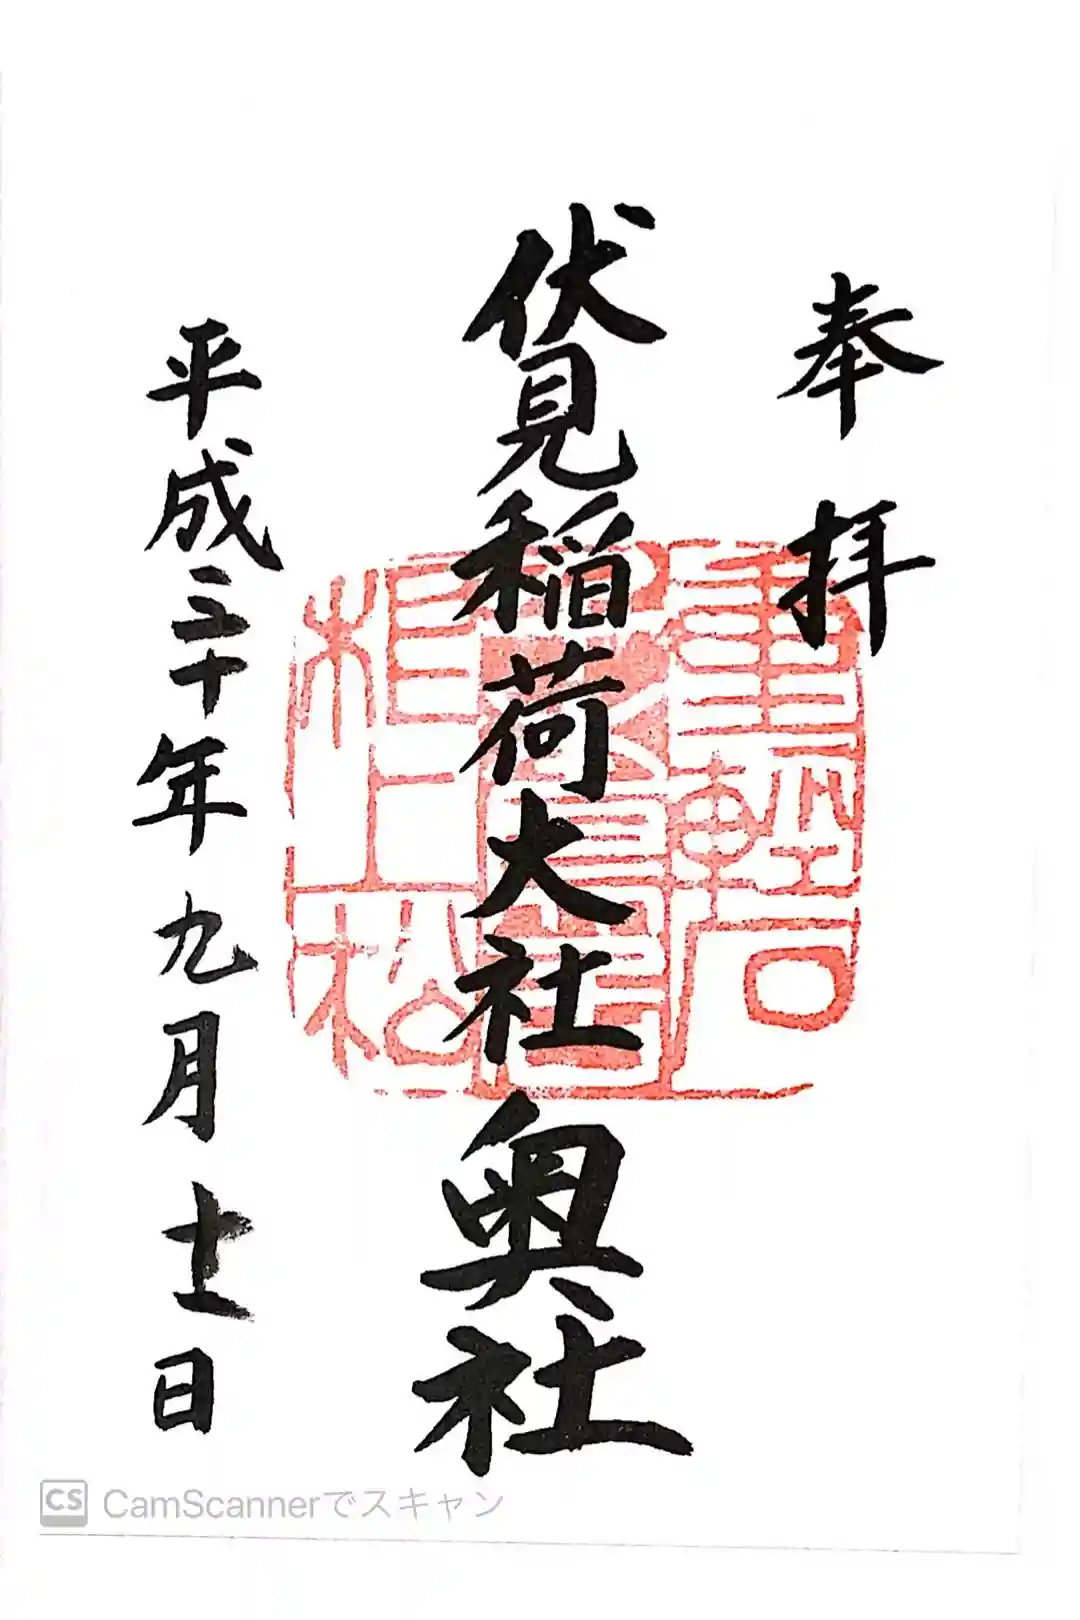 奉拝
伏見稲荷大社奥社
重軽石
根上松
平成三十年九月十二日
CS CamScannerでスキャン